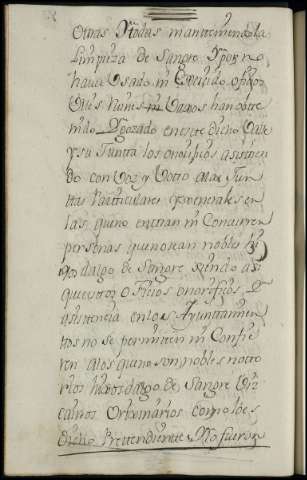 Otras Ytodas manteniendo la
Limpieza de Sangre Ypor no
haver Usado ni Exercido oficios
Viles Nunca Vajos han obte
nido Ygozado en este dicho Valle
y su Junta los onorificos asistien
do con Voz y Votto a las Jun
tas Particulares y Generales en
las que no entran ni Concurren
personas que no sean nobles hi
josdalgo de Sangre siendo asi
que estos oficios onorificos y
asistencia en los Ayuntamien
tos no se permiten ni Confie
ren a los que no son nobles notto
rios hijosdalgo de Sangre Viz
cainos Originarios como lo es
dicho Prettendiente No fueron